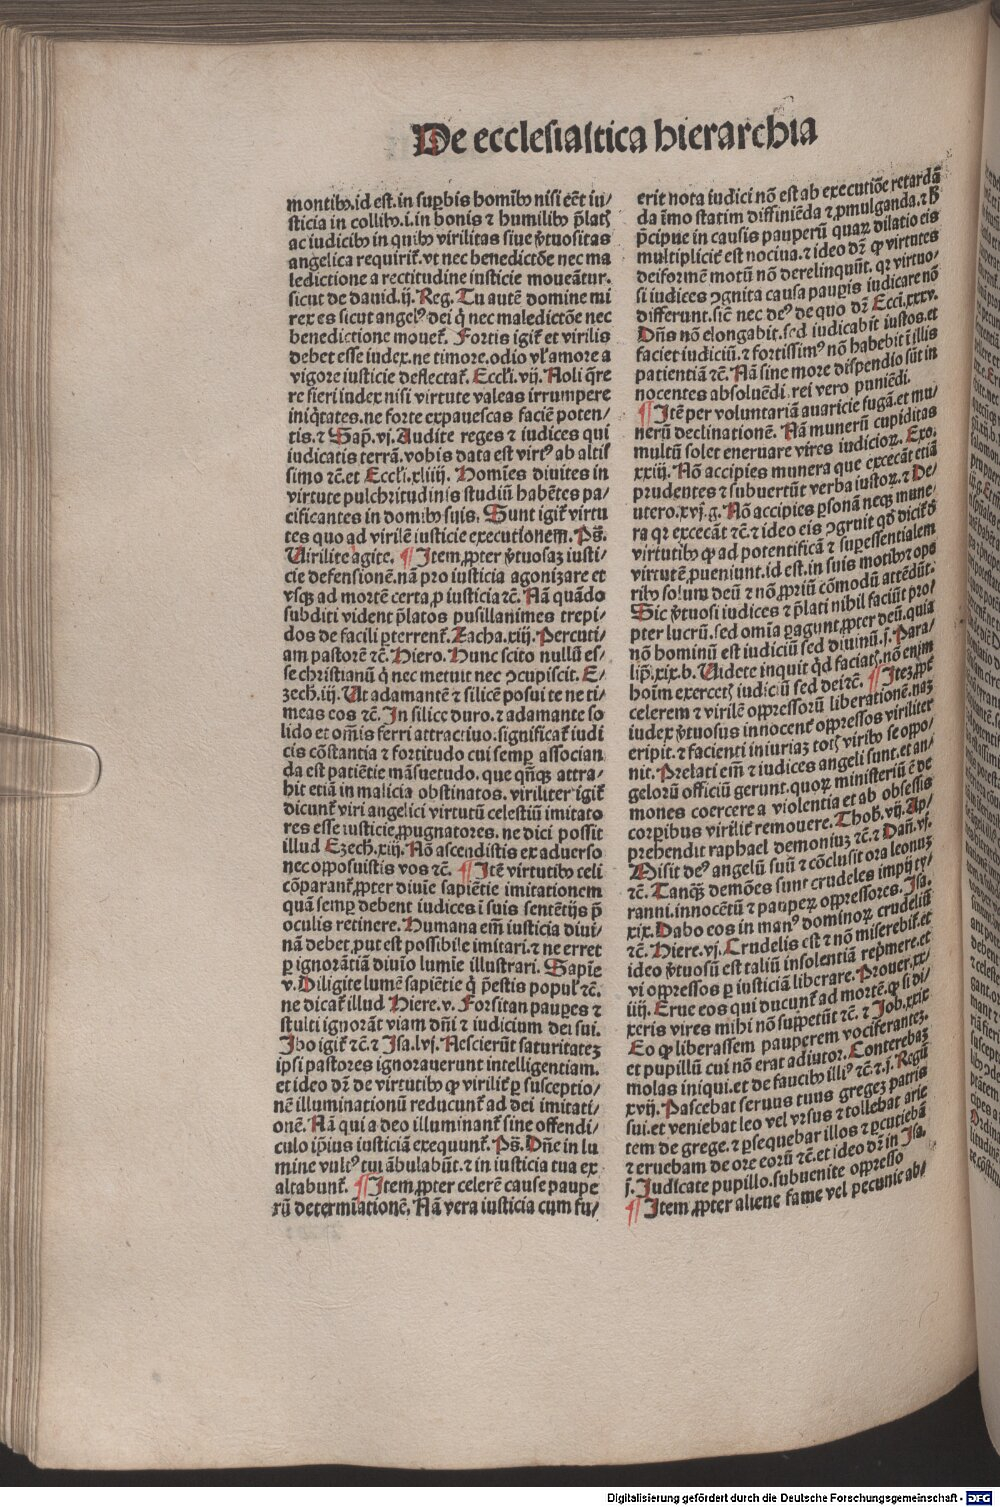 De ecclesiastica hierarchia
montibꝰ.id est.in suꝑbis homībꝰ nisi eēt iu/
sticia in collibꝰ.i.in bonis ⁊ humilibꝰ p̄latꝭ
ac iudicibꝰ in quibꝰ virilitas siue v̓tuositas
angelica requirit̃.vt nec benedictōe nec ma
ledictione a rectitudine iusticie moueāntur.
sicut de dauid.ij.Reg.Tu autē domine mi
rex es sicut angelꝰ dei q̇ nec maledictōe nec
benedictione mouet̃. Fortis igit̃ et virilis
debet esse iudex.ne timore.odio vl̓ amore a
vigore iusticie deflectat̃. Eccl̓i.vij. Noli q̄re
re fieri iudex nisi virtute valeas irrumpere
iniq̇tates.ne forte expauescas faciē poten/
tis.⁊ Sap̄.vj.Audite reges ⁊ iudices qui
iudicatis terrā.vobis data est virtꝰ ab altis̃
simo ⁊c̄.et Eccl̓i.xliiij. Homīes diuites in
virtute pulchritudinis studiū habētes pa/
cificantes in domibꝰ suis. Sunt igit̃ virtu
tes quo ad virilē iusticie executionem. Ps̄.
Uirilite agite. ¶ Item ꝓpter v̓tuosaꝫ iusti/
cie defensionē.nā pro iusticia agonizare et
vsqꝫ ad mortē certa ꝓ iusticia ⁊c̄. Nā quādo
subditi vident p̄latos pusillanimes trepi/
dos de facili ꝑterrent̃. Zacha.xiij. Percuti/
am pastorē ⁊c̄. Hiero. Hunc scito nullū es/
se christianū q̇ nec metuit nec ↄcupiscit. E/
zech.iij. Ut adamantē ⁊ silicē posui te ne ti/
meas eos ⁊c̄. In silice duro.⁊ adamante so
lido et om̄is ferri attractiuo.significat̃ iudi
cis cōstantia ⁊ fortitudo cui semꝑ associan
da est patiētie māsuetudo.que qn̄qꝫ attra/
hit etiā in malicia obstinatos. viriliter igit̃
dicunt̃ viri angelici virtutū celestiū imitato
res esse iusticie ꝓpugnatores. ne dici possit
illud Ezech.xiij. Nō ascendistis ex aduerso
nec opposuistis vos ⁊c̄. ¶ Itē virtutibꝰ celi
cōparant̃ ꝓpter diuīe sapiētie imitationem
quā semꝑ debent iudices ī suis sentētijs p̄
oculis retinere. Humana em̄ iusticia diui/
nā debet ꝓut est possibile imitari.⁊ ne erret
ꝑ ignorātiā diuīo lumīe illustrari. Sapīe
v.Diligite lumē sapiētie q̇ p̄estis populꝭ ⁊c̄.
ne dicat̃ illud Hiere.v. Forsitan pauꝑes ⁊
stulti ignorāt viam dn̄i ⁊ iudicium dei sui.
Ibo igit̃ ⁊c̄.⁊ Isa.lvj. Nescierūt saturitateꝫ
ipsi pastores ignorauerunt intelligentiam.
et ideo dr̄ de virtutibꝰ ꝙ virilit̃ ꝑ susceptio/
nē illuminationū reducunt̃ ad dei imitati/
onē. Nā qui a deo illuminant̃ sine offendi/
culo ip̄ius iusticiā exequunt̃. Ps̄. Dn̄e in lu
mine vultꝰ tui ābulabūt.⁊ in iusticia tua ex
altabunt̃. ¶ Item ꝓpter celerē cause paupe
rū determīationē. Nā vera iusticia cum fu̓/
erit nota iudici nō est ab executiōe retardā
da īmo statim diffiniēda ⁊ ꝓmulganda.⁊ h̓
p̄cipue in causis pauperū quaꝝ dilatio eis
multiplicit̃ est nociua.⁊ ideo dr̄ ꝙ virtutes
deiformē motū nō derelinquūt. qꝛ virtuo/
si iudices ↄgnita causa pauꝑis iudicare nō
differunt.sic̄ nec deꝰ de quo dr̄ Ecci.xxxv.
Dn̄s nō elongabit.sed iudicabit iustos.et
faciet iudiciū.⁊ fortissimꝰ nō habebit ī illis
patientiā ⁊c̄. Nā sine more dispendio sūt in
nocentes absoluēdi.rei vero puniēdi.
¶ Itē per voluntariā auaricie fugā.et mu/
nerū declinationē. Nā munerū cupiditas
multū solet eneruare vires iudicioꝝ. Exo.
xxiij. Nō accipies munera que excecāt etiā
prudentes ⁊ subuertūt verba iustoꝝ.⁊ De/
utero.xvj.g. Nō accipies ꝑsonā neqꝫ mune/
ra qꝛ excecāt ⁊c̄ ⁊ ideo eis ↄgruit qd̓ dicit̃ d̓
virtutibꝰ ꝙ ad potentificā ⁊ suꝑessentialem
virtutē ꝓueniunt.id est.in suis motibꝰ ⁊ ope
ribꝰ solum deū ⁊ nō ꝓpriū cōmodū attēdūt.
Sic v̓tuosi iudices ⁊ p̄lati nihil faciūt pro/
pter lucrū.sed om̄ia ꝑagunt ꝓpter deū.quia
nō hominū est iudiciū sed diuinū.j. Para/
lip̄.xix.b. Uidete inquit q̇d faciatꝭ.nō enim
hoīm exercetꝭ iudiciū sed dei ⁊c̄. ¶ Iteꝫ ꝓpt̃
celerem ⁊ virilē oppressorū liberationē.naꝫ
iudex v̓tuosus innocent̃ oppressos viriliter
eripit.⁊ facienti iniuriaꝫ totꝭ viribꝰ se oppo/
nit. Prelati em̄ ⁊ iudices angeli sunt.et an/
gelorū officiū gerunt.quoꝝ ministeriū ē de
mones coercere a violentia et ab obsessis
corꝑibus virilit̃ remouere. Thob.vij. Ap/
prehendit raphael demoniuꝫ ⁊c̄.⁊ Dan̄.vj.
Misit deꝰ angelū suū ⁊ cōclusit ora leonuꝫ
⁊c̄. Tanqꝫ demōes sunt crudeles impij ty/
ranni.innocētū ⁊ pauꝑeꝝ oppressores. Isa.
xix. Dabo eos in manꝰ dominoꝝ crudeliū
⁊c̄. Hiere.vj. Crudelis est ⁊ nō miserebit̃.et
ideo v̓tuosū est taliū insolentiā rep̓mere.et
vi oppressos ꝑ iusticiā liberare. Prouer.xx/
iiij. Erue eos qui ducunt̃ ad mortē.ꝙ si di/
xeris vires mihi nō suppetūt ⁊c̄. ⁊ Iob.xxix
Eo ꝙ liberassem pauperem vociferanteꝫ.
et pupillū cui nō erat adiutor. Conterebaꝫ
molas iniqui.et de faucibꝰ illiꝰ ⁊c̄.⁊.j. Regū
xvij. Pascebat seruus tuus gregeꝫ patris
sui.et veniebat leo vel vrsus ⁊ tollebat arie
tem de grege.⁊ ꝑsequebar illos ⁊ ꝑcutiebā
⁊ eruebam de ore eorū ⁊c̄.et ideo dr̄ in Isa.
j. Iudicate pupillo.subuenite oppresso
¶ Item ꝓpter aliene fame vel pecunie ab/
Digitalisierung gefördert durch die Deutsche Forschungsgemeinschaft - DFG